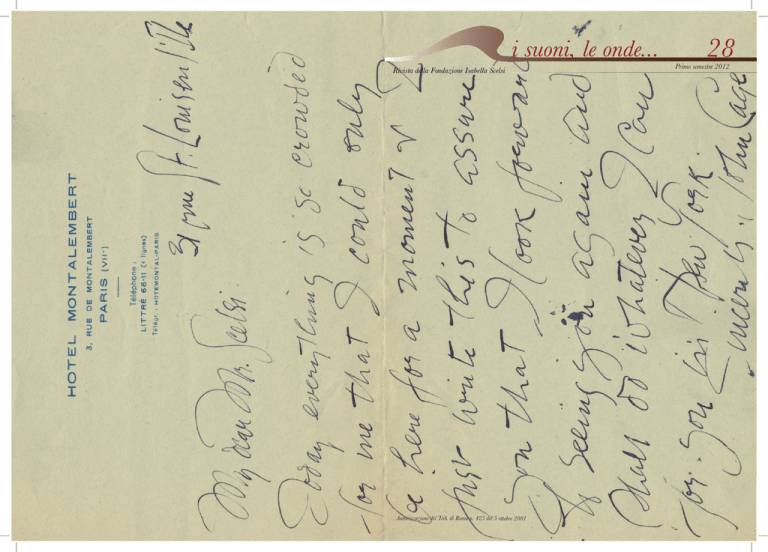 i suoni, le onde...
28
Rivista della Fondazione Isabella Scelsi
Primo semestre 2012
HOTEL MONTALEMBERT
3, RUE DE MONTALEMBERT
PARIS (VII^e)
Téléphone :
LITTRÉ 68-11 (4 lignes)
Télégr. : HOTEMONTAL-PARIS
31 rue St. Louis en l'Ile
My dear Mr. Scelsi:
Today everything is so crowded
for me that I could only
be here for a moment & I
just write this to assure
you that I look forward
to seeing you again and
shall do whatever I can
for you in New York.
Sincerely, John Cage
Autorizzazione del Trib. di Roma n. 425 del 3 ottobre 2001